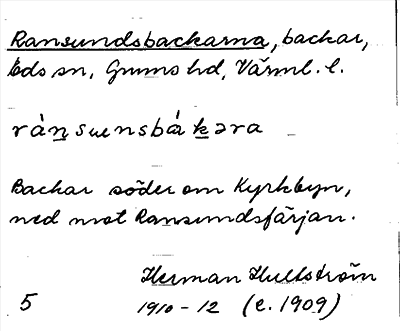 Ransundsbackarna, backar,
Eds sn, Grums hd, Värml. l.
rán sɯensbákəra
Backar söder om Kyrkbyn,
ned mot Ransundsfärjan.
Herman Hultström
5 1910-12 (e. 1909)